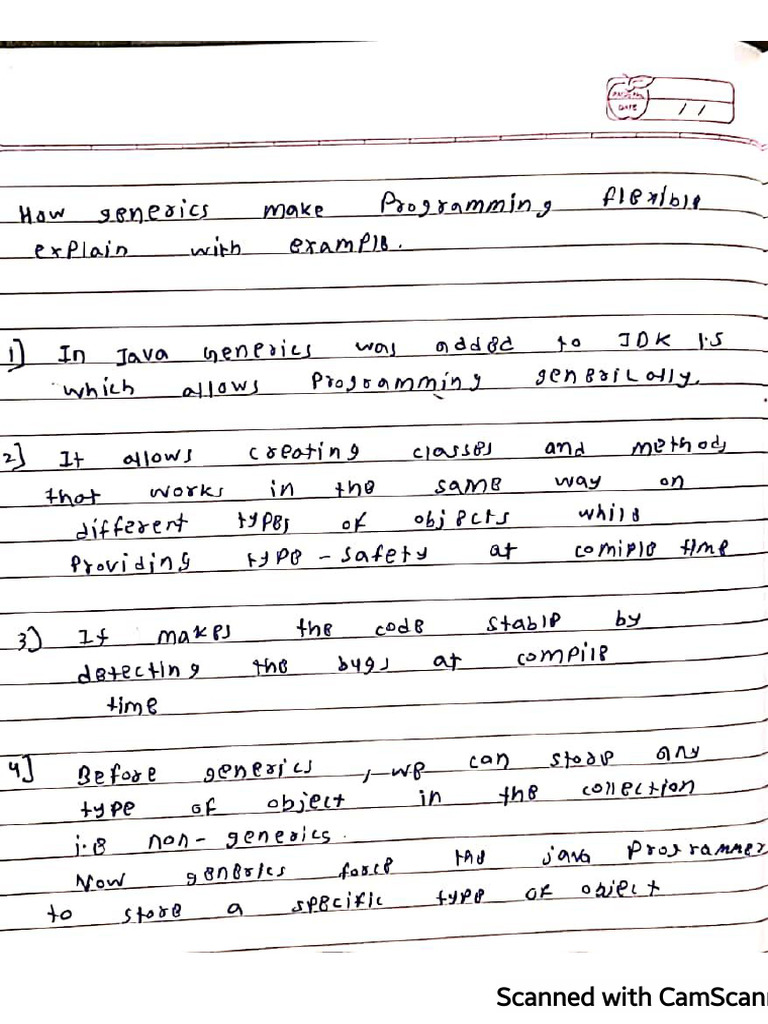 / /
How generics make Programming flexible
explain with example.
1] In Java Generics was added to JDK 1.5
which allows Programming generically.
2] It allows creating classes and methods
that works in the same way on
different types of objects while
Providing type-safety at comiple time
3) It makes the code stable by
detecting the bugs at compile
time
4] Before generics, we can store any
type of object in the collection
i.e non-generics.
Now generics force the java Programmer
to store a specific type of object
Scanned with CamScann